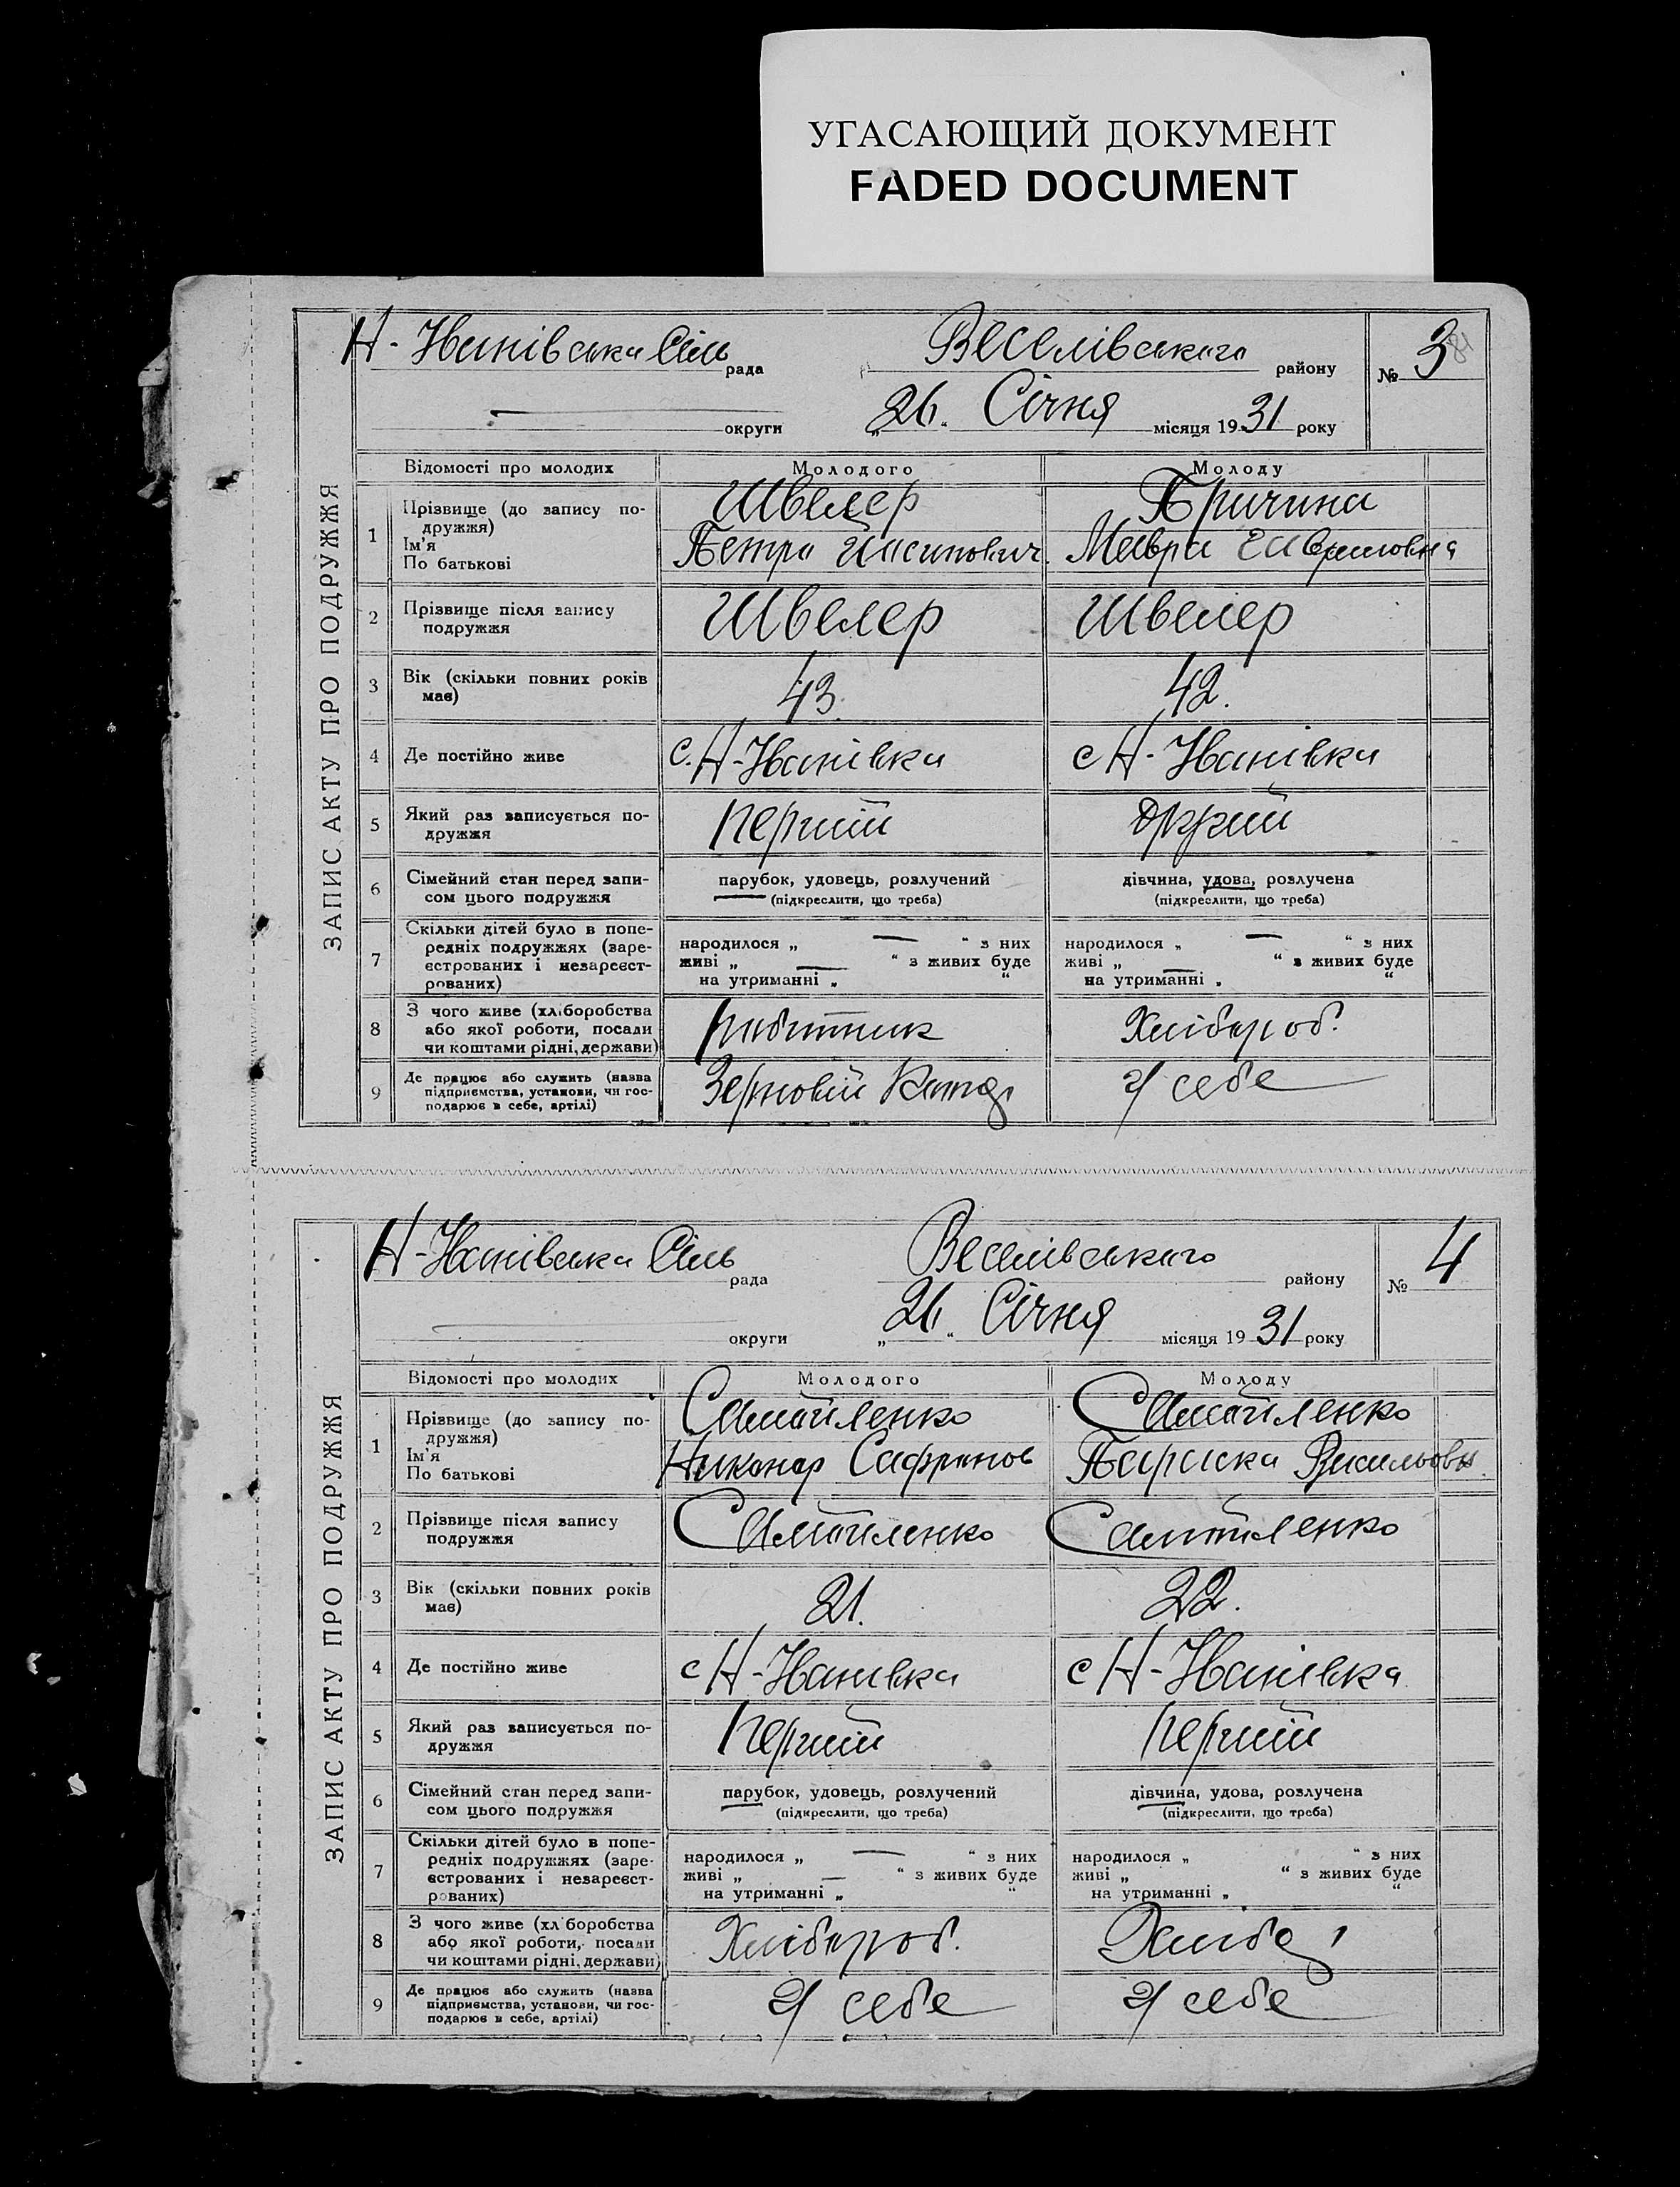 УГАСАЮЩИЙ ДОКУМЕНТ
FADED DOCUMENT
ЗАПИС АКТУ ПРО ПОДРУЖЖЯ
Н-Іванівська Сіль рада Веселівського району № 3
округи „26“ Січня місяця 1931 року
Відомості про молодих Молодого Молоду
1 Прізвище (до запису по-
дружжя)
Ім'я
По батькові
Швелер
Петро
Причина
Мавра Гавриловна
2 Прізвище після запису
подружжя
Швелер Швелер
3 Вік (скільки повних років
має)
43. 42.
4 Де постійно живе с. Н-Іванівка с Н-Іванівка
5 Який раз записується по-
дружжя
перший другий
6 Сімейний стан перед запи-
сом цього подружжя
парубок, удовець, розлучений
(підкреслити, що треба)
дівчина, удова, розлучена
(підкреслити, що треба)
7 Скільки дітей було в попе-
редніх подружжях (заре-
єстрованих і незареєст-
рованих)
народилося „ — “ з них
живі „ — “ з живих буде
на утриманні „ “
народилося „ — “ з них
живі „ — “ з живих буде
на утриманні „ “
8 З чого живе (хліборобства
або якої роботи, посади
чи коштами рідні, держави)
робітник Хлібороб.
9 Де працює або служить (назва
підприємства, установи, чи гос-
подарює в себе, артілі)
Зерновій У себе
ЗАПИС АКТУ ПРО ПОДРУЖЖЯ
Н-Іванівська Сіль рада Веселівського району № 4
округи „26“ Січня місяця 1931 року
Відомості про молодих Молодого Молоду
1 Прізвище (до запису по-
дружжя)
Ім'я
По батькові
Самойленко
Никонор Сафронов
Самойленко
Параска Васильовн
2 Прізвище після запису
подружжя
Самойленко Самойленко
3 Вік (скільки повних років
має)
21. 22.
4 Де постійно живе с Н-Іванівка с Н-Іванівка
5 Який раз записується по-
дружжя
перший перший
6 Сімейний стан перед запи-
сом цього подружжя
парубок, удовець, розлучений
(підкреслити, що треба)
дівчина, удова, розлучена
(підкреслити, що треба)
7 Скільки дітей було в попе-
редніх подружжях (заре-
єстрованих і незареєст-
рованих)
народилося „ — “ з них
живі „ — “ з живих буде
на утриманні „ “
народилося „ “ з них
живі „ “ з живих буде
на утриманні „ “
8 З чого живе (хліборобства
або якої роботи, посади
чи коштами рідні, держави)
Хлібороб.
9 Де працює або служить (назва
підприємства, установи, чи гос-
подарює в себе, артілі)
У себе У себе